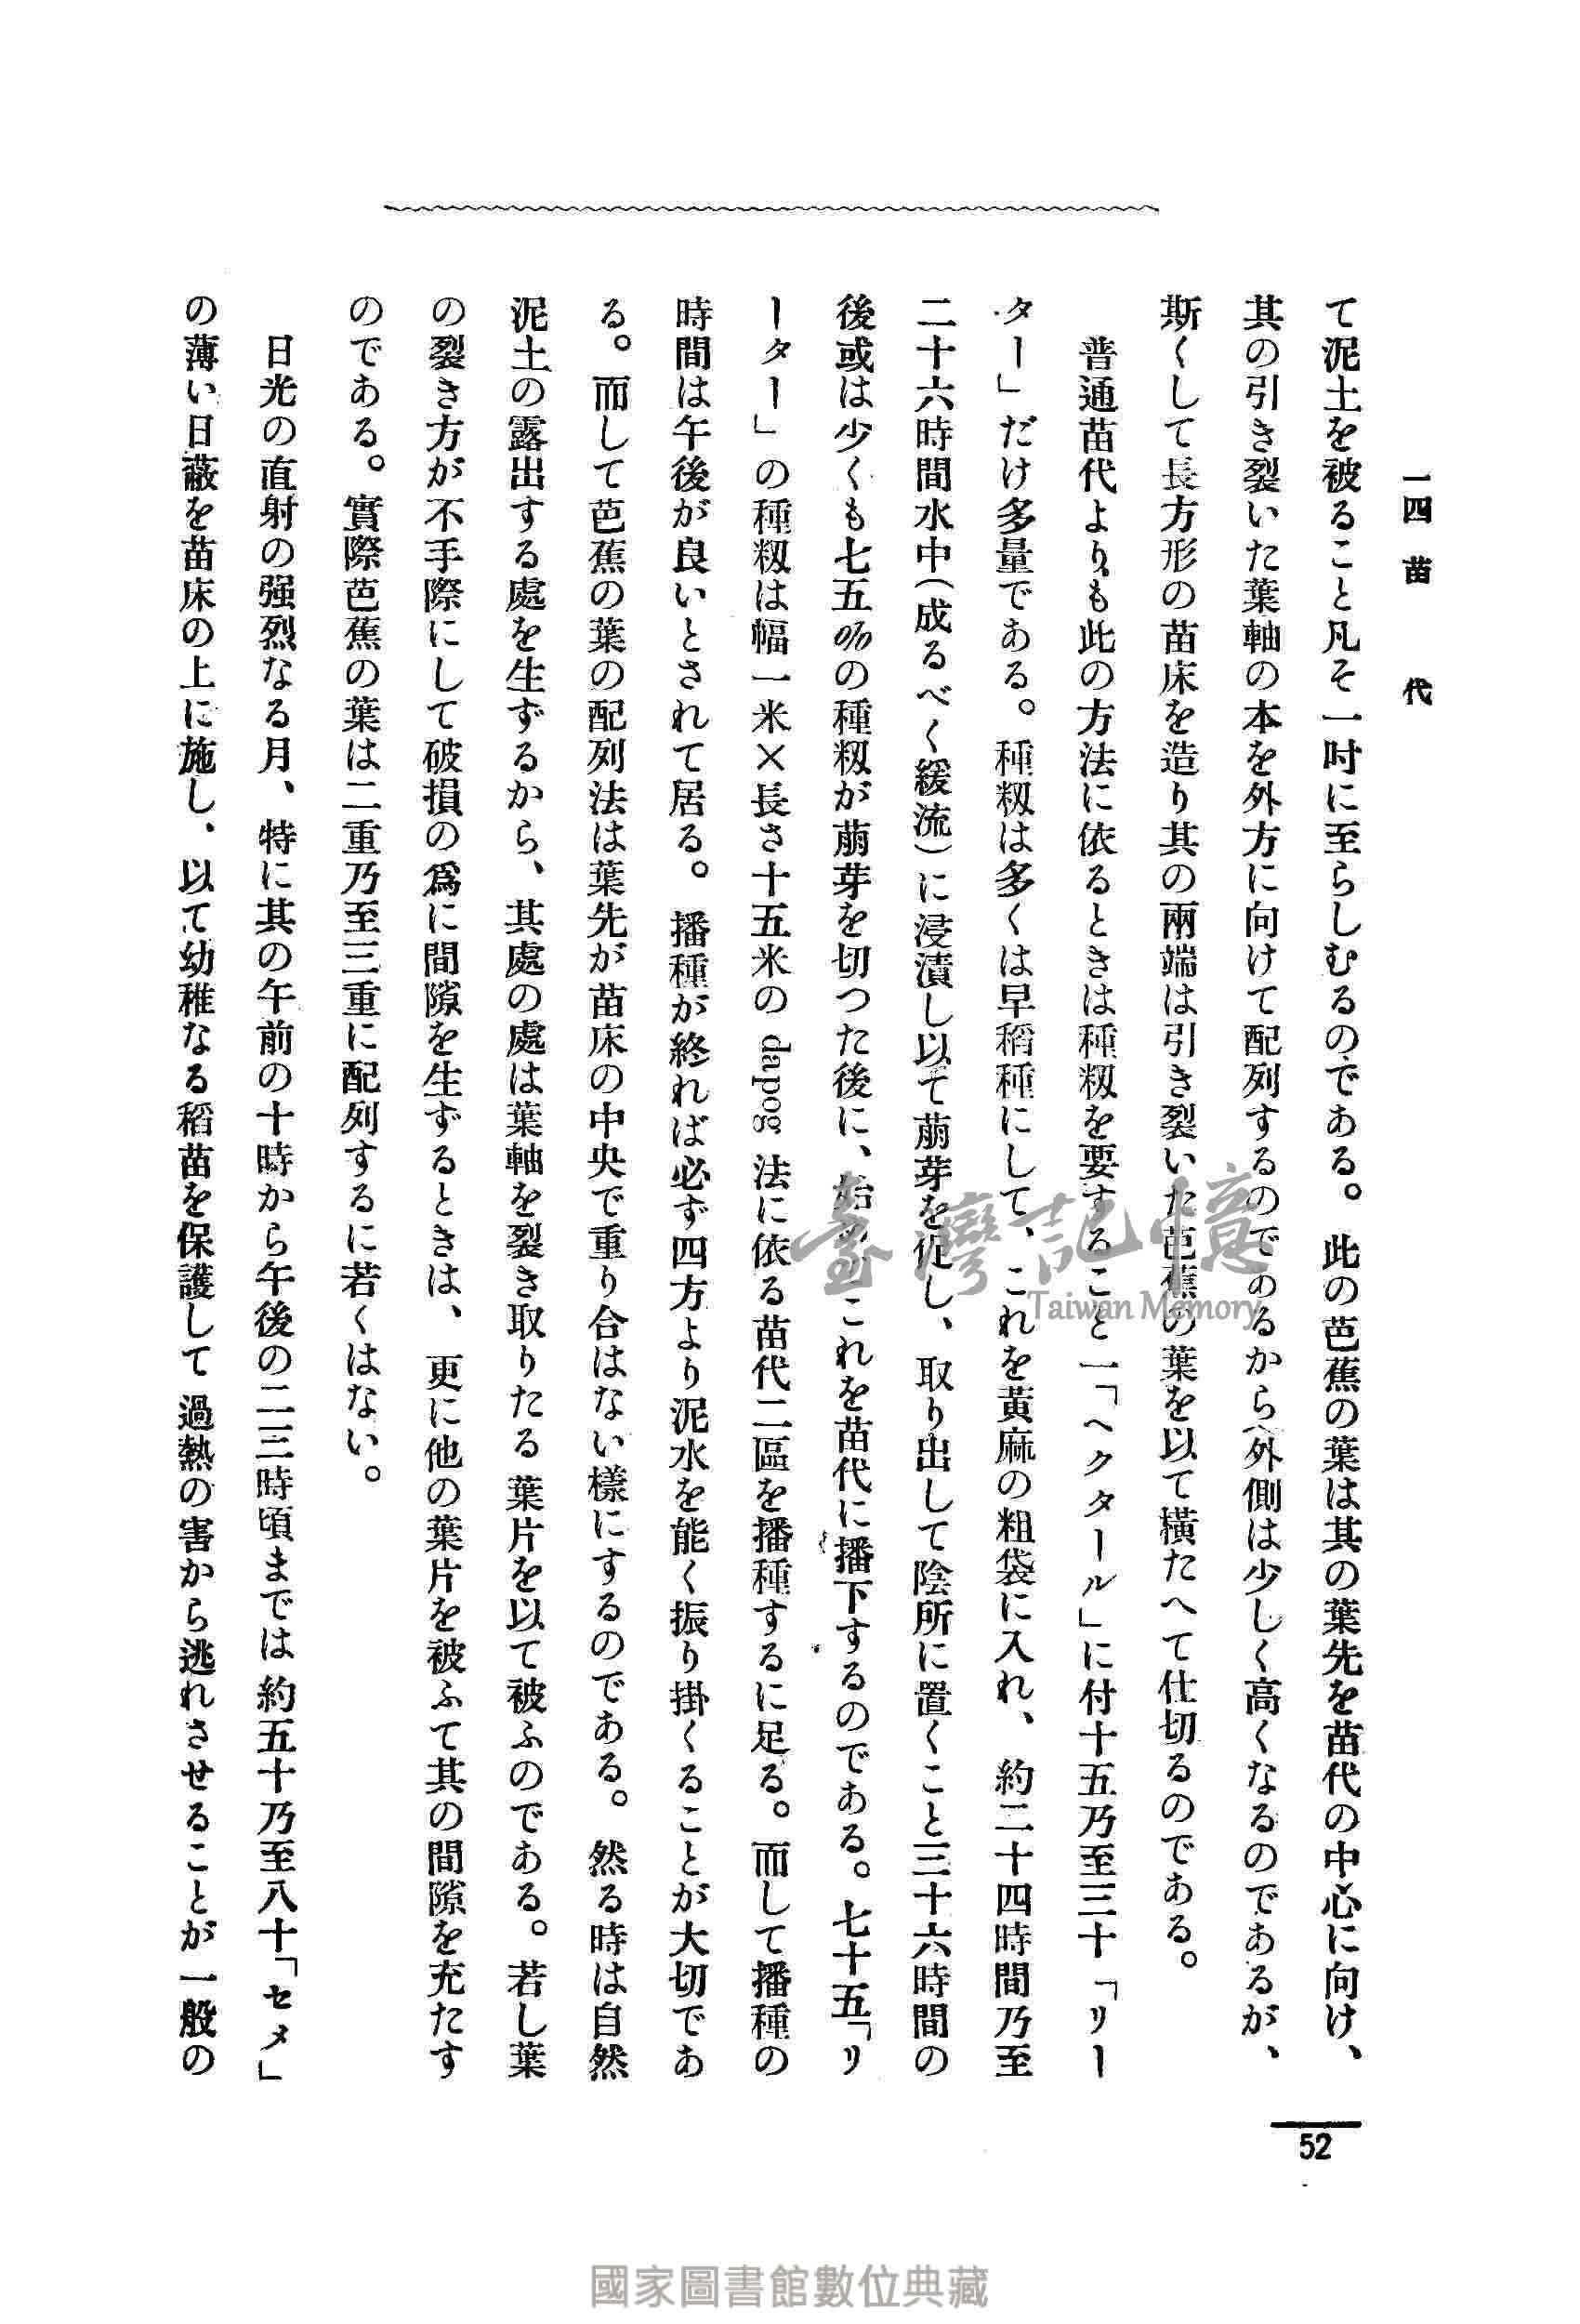 一四 苗 代
て泥土を被ること凡そ一吋に至らしむるのである。此の芭蕉の葉は其の葉先を苗代の中心に向け、
其の引き裂いた葉軸の本を外方に向けて配列するのであるから外側は少しく高くなるのであるが、
斯くして長方形の苗床を造り其の兩端は引き裂いた芭蕉の葉を以て橫たへて仕切るのである。
普通苗代よりも此の方法に依るときは種籾を要すること一「ヘクタール」に付十五乃至三十「リー
ター」だけ多量である。種籾は多くは早稻種にして、これを黃麻の粗袋に入れ、約二十四時間乃至
二十六時間水中(成るべく緩流)に浸漬し以て萠芽を促し、取り出して陰所に置くこと三十六時間の
後或は少くも七五%の種籾が萠芽を切つた後に、始めてこれを苗代に播下するのである。七十五「リ
ーター」の種籾は幅一米×長さ十五米の dapog 法に依る苗代二區を播種するに足る。而して播種の
時間は午後が良いとされて居る。播種が終れば必ず四方より泥水を能く振り掛くることが大切であ
る。而して芭蕉の葉の配列法は葉先が苗床の中央で重り合はない樣にするのである。然る時は自然
泥土の露出する處を生ずるから、其處の處は葉軸を裂き取りたる葉片を以て被ふのである。若し葉
の裂き方が不手際にして破損の爲に間隙を生ずるときは、更に他の葉片を被ふて其の間隙を充たす
のである。實際芭蕉の葉は二重乃至三重に配列するに若くはない。
日光の直射の强烈なる月、特に其の午前の十時から午後の二三時頃までは約五十乃至八十「セメ」
の薄い日蔽を苗床の上に施し、以て幼稚なる稻苗を保護して過熱の害から逃れさせることが一般の
52
臺灣記憶
Taiwan Memory
國家圖書館數位典藏